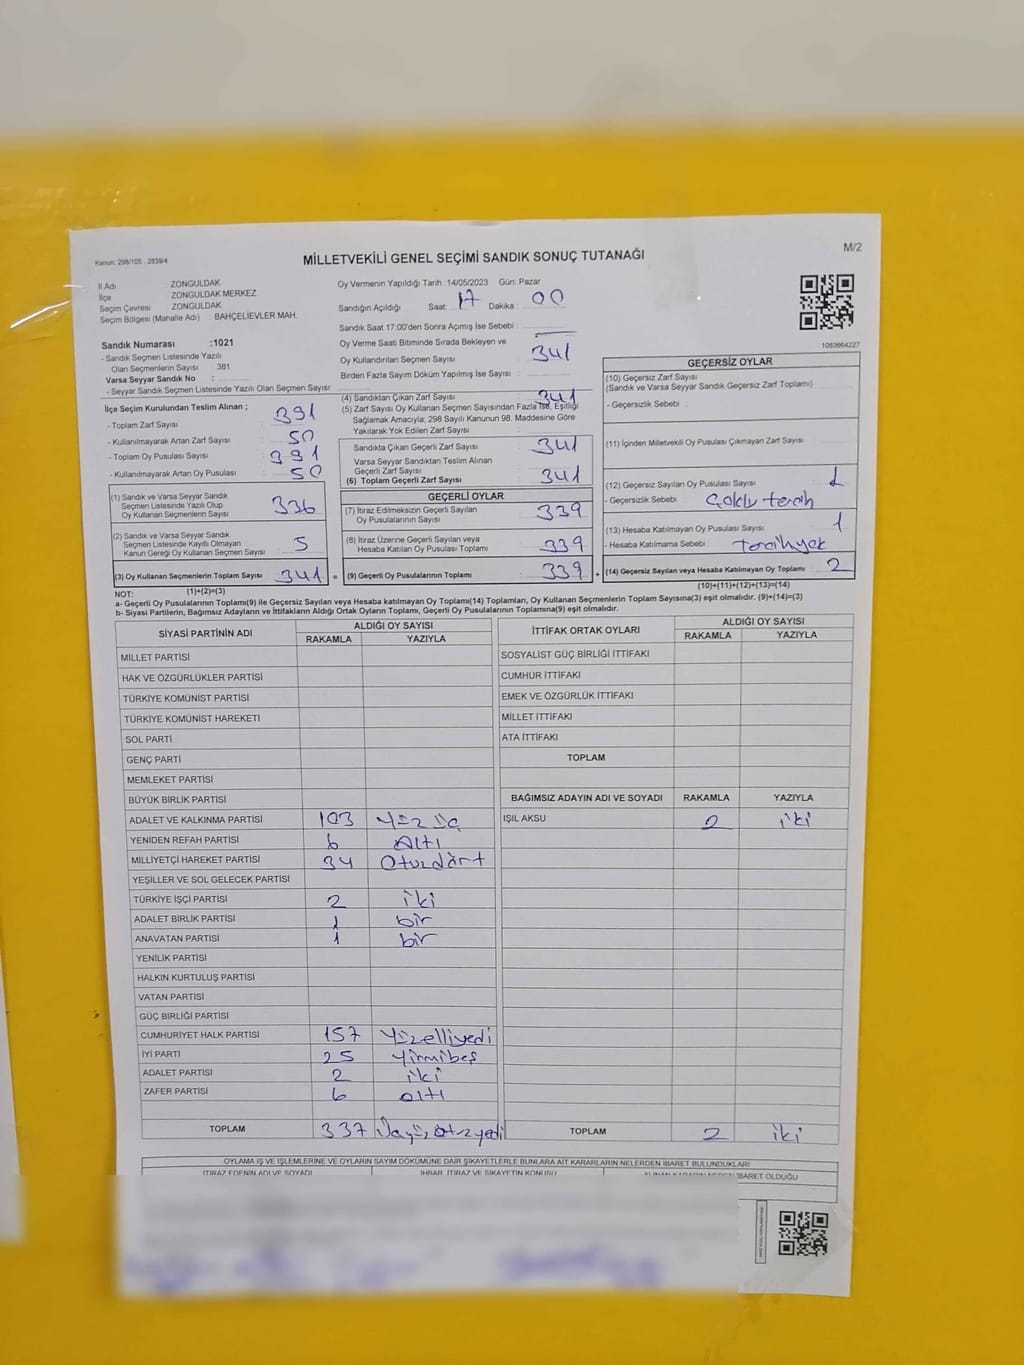 Kanun: 298/105 . 2839/4
M/2
MİLLETVEKİLİ GENEL SEÇİMİ SANDIK SONUÇ TUTANAĞI
İl Adı : ZONGULDAK
İlçe ZONGULDAK MERKEZ
Seçim Çevresi : ZONGULDAK
Seçim Bölgesi (Mahalle Adı) : BAHÇELİEVLER MAH.
Oy Vermenin Yapıldığı Tarih : 14/05/2023 Gün: Pazar
Sandığın Açıldığı Saat: 17 Dakika : 00
Sandık Saat 17:00'den Sonra Açımış İse Sebebi :
Oy Verme Saati Bitiminde Sırada Bekleyen ve
Oy Kullandırılan Seçmen Sayısı 341
Birden Fazla Sayım Döküm Yapılmış İse Sayısı :
1083664227
Sandık Numarası :1021
- Sandık Seçmen Listesinde Yazılı
Olan Seçmenlerin Sayısı 381
Varsa Seyyar Sandık No :
- Seyyar Sandık Seçmen Listesinde Yazılı Olan Seçmen Sayısı:
İlçe Seçim Kurulundan Teslim Alınan ;
- Toplam Zarf Sayısı 391
- Kullanılmayarak Artan Zarf Sayısı 50
- Toplam Oy Pusulası Sayısı 391
- Kullanılmayarak Artan Oy Pusulası 50
(1) Sandık ve Varsa Seyyar Sandık
Seçmen Listesinde Yazılı Olup
Oy Kullanan Seçmenlerin Sayısı 336
(2) Sandık ve Varsa Seyyar Sandık
Seçmen Listesinde Kayıtlı Olmayan
Kanun Gereği Oy Kullanan Seçmen Sayısı 5
(3) Oy Kullanan Seçmenlerin Toplam Sayısı 341 =
(1)+(2)=(3)
(4) Sandıktan Çıkan Zarf Sayısı 341
(5) Zarf Sayısı Oy Kullanan Seçmen Sayısından Fazla İse, Eşitliği
Sağlamak Amacıyla, 298 Sayılı Kanunun 98. Maddesine Göre
Yakılarak Yok Edilen Zarf Sayısı :
Sandıkta Çıkan Geçerli Zarf Sayısı 341
Varsa Seyyar Sandıktan Teslim Alınan
Geçerli Zarf Sayısı
(6) Toplam Geçerli Zarf Sayısı 341
GEÇERLİ OYLAR
(7) İtiraz Edilmeksizin Geçerli Sayılan
Oy Pusulalarının Sayısı 339
(8) İtiraz Üzerine Geçerli Sayılan veya
Hesaba Katılan Oy Pusulası Toplamı 339
(9) Geçerli Oy Pusulalarının Toplamı 339 +
GEÇERSİZ OYLAR
(10) Geçersiz Zarf Sayısı
(Sandık ve Varsa Seyyar Sandık Geçersiz Zarf Toplamı)
- Geçersizlik Sebebi :
(11) İçinden Milletvekili Oy Pusulası Çıkmayan Zarf Sayısı
(12) Geçersiz Sayılan Oy Pusulası Sayısı 1
- Geçersizlik Sebebi : Çoklu tercih
(13) Hesaba Katılmayan Oy Pusulası Sayısı 1
- Hesaba Katılmama Sebebi : Tercihyok
(14) Geçersiz Sayılan veya Hesaba Katılmayan Oy Toplamı 2
(10)+(11)+(12)+(13)=(14)
NOT:
a- Geçerli Oy Pusulalarının Toplamı(9) ile Geçersiz Sayılan veya Hesaba katılmayan Oy Toplamı(14) Toplamları, Oy Kullanan Seçmenlerin Toplam Sayısına(3) eşit olmalıdır. (9)+(14)=(3)
b- Siyasi Partilerin, Bağımsız Adayların ve İttifakların Aldığı Ortak Oyların Toplamı, Geçerli Oy Pusulalarının Toplamına(9) eşit olmalıdır.
SİYASİ PARTİNİN ADI ALDIĞI OY SAYISI
RAKAMLA YAZIYLA
MİLLET PARTİSİ
HAK VE ÖZGÜRLÜKLER PARTİSİ
TÜRKİYE KOMÜNİST PARTİSİ
TÜRKİYE KOMÜNİST HAREKETİ
SOL PARTİ
GENÇ PARTİ
MEMLEKET PARTİSİ
BÜYÜK BİRLİK PARTİSİ
ADALET VE KALKINMA PARTİSİ 103 Yüz üç
YENİDEN REFAH PARTİSİ 6 Altı
MİLLİYETÇİ HAREKET PARTİSİ 34 Otuzdört
YEŞİLLER VE SOL GELECEK PARTİSİ
TÜRKİYE İŞÇİ PARTİSİ 2 iki
ADALET BİRLİK PARTİSİ 1 bir
ANAVATAN PARTİSİ 1 bir
YENİLİK PARTİSİ
HALKIN KURTULUŞ PARTİSİ
VATAN PARTİSİ
GÜÇ BİRLİĞİ PARTİSİ
CUMHURİYET HALK PARTİSİ 157 Yüzelliyedi
İYİ PARTİ 25 Yirmibeş
ADALET PARTİSİ 2 iki
ZAFER PARTİSİ 6 altı
TOPLAM 337 Üçyüzotuzyedi
İTTİFAK ORTAK OYLARI ALDIĞI OY SAYISI
RAKAMLA YAZIYLA
SOSYALİST GÜÇ BİRLİĞİ İTTİFAKI
CUMHUR İTTİFAKI
EMEK VE ÖZGÜRLÜK İTTİFAKI
MİLLET İTTİFAKI
ATA İTTİFAKI
TOPLAM
BAĞIMSIZ ADAYIN ADI VE SOYADI RAKAMLA YAZIYLA
IŞIL AKSU 2 iki
TOPLAM 2 iki
OYLAMA İŞ VE İŞLEMLERİNE VE OYLARIN SAYIM DÖKÜMÜNE DAİR ŞİKAYETLERLE BUNLARA AİT KARARLARIN NELERDEN İBARET BULUNDUKLARI
İTİRAZ EDENİN ADI VE SOYADI İHBAR, İTİRAZ VE ŞİKAYETİN KONUSU ALINAN KARARIN NEDEN İBARET OLDUĞU